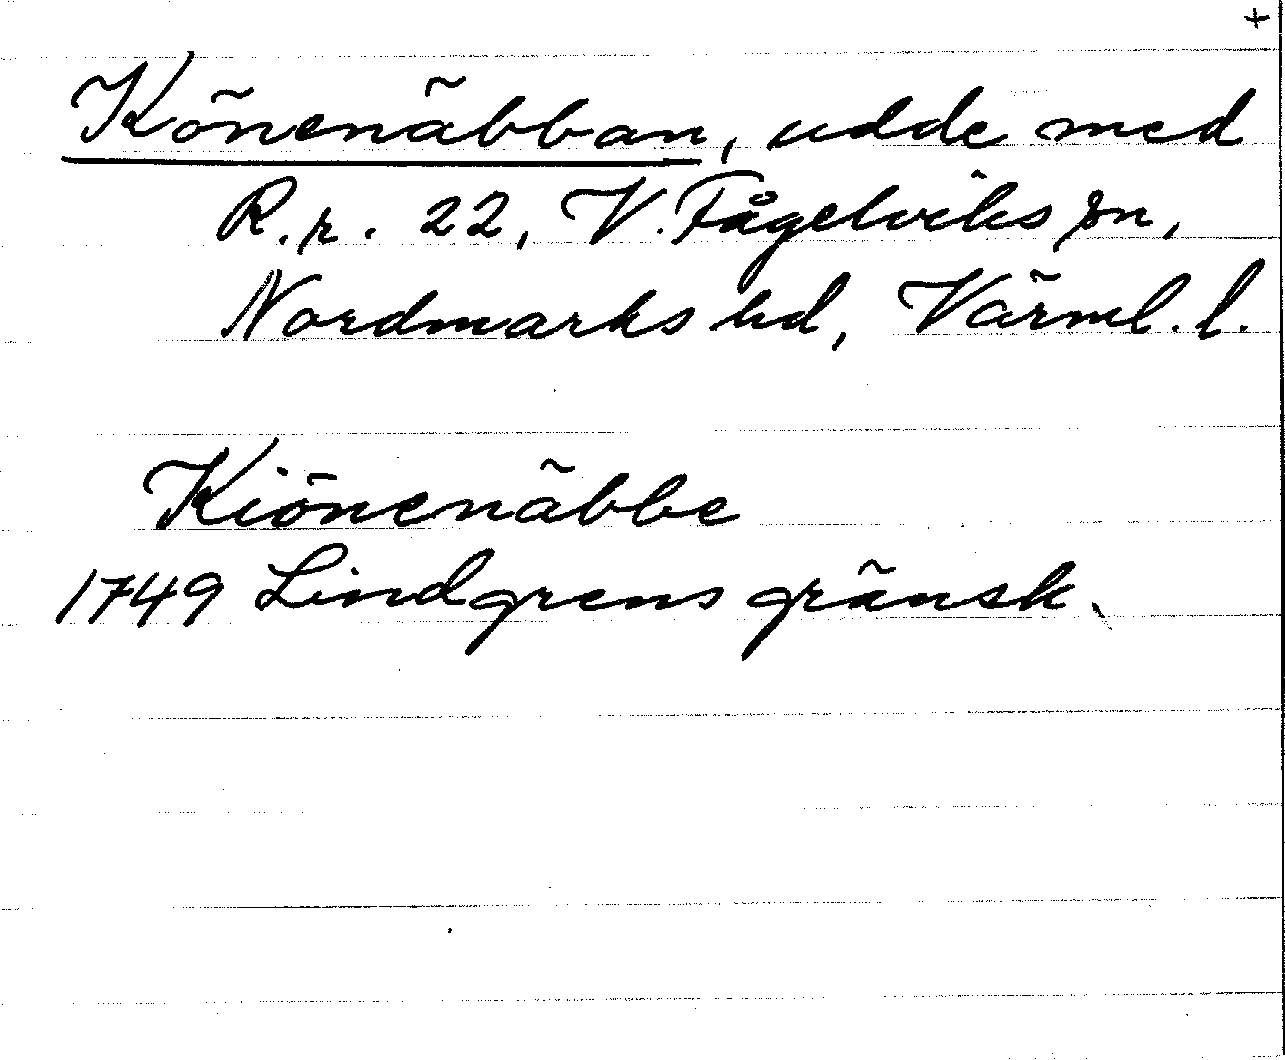 +
Könenäbban, udde med
R.r. 22, V. Fågelviks sn,
Nordmarks hd, Värml. l.
Kiönenäbbe
1749 Lindgrens gränsk.